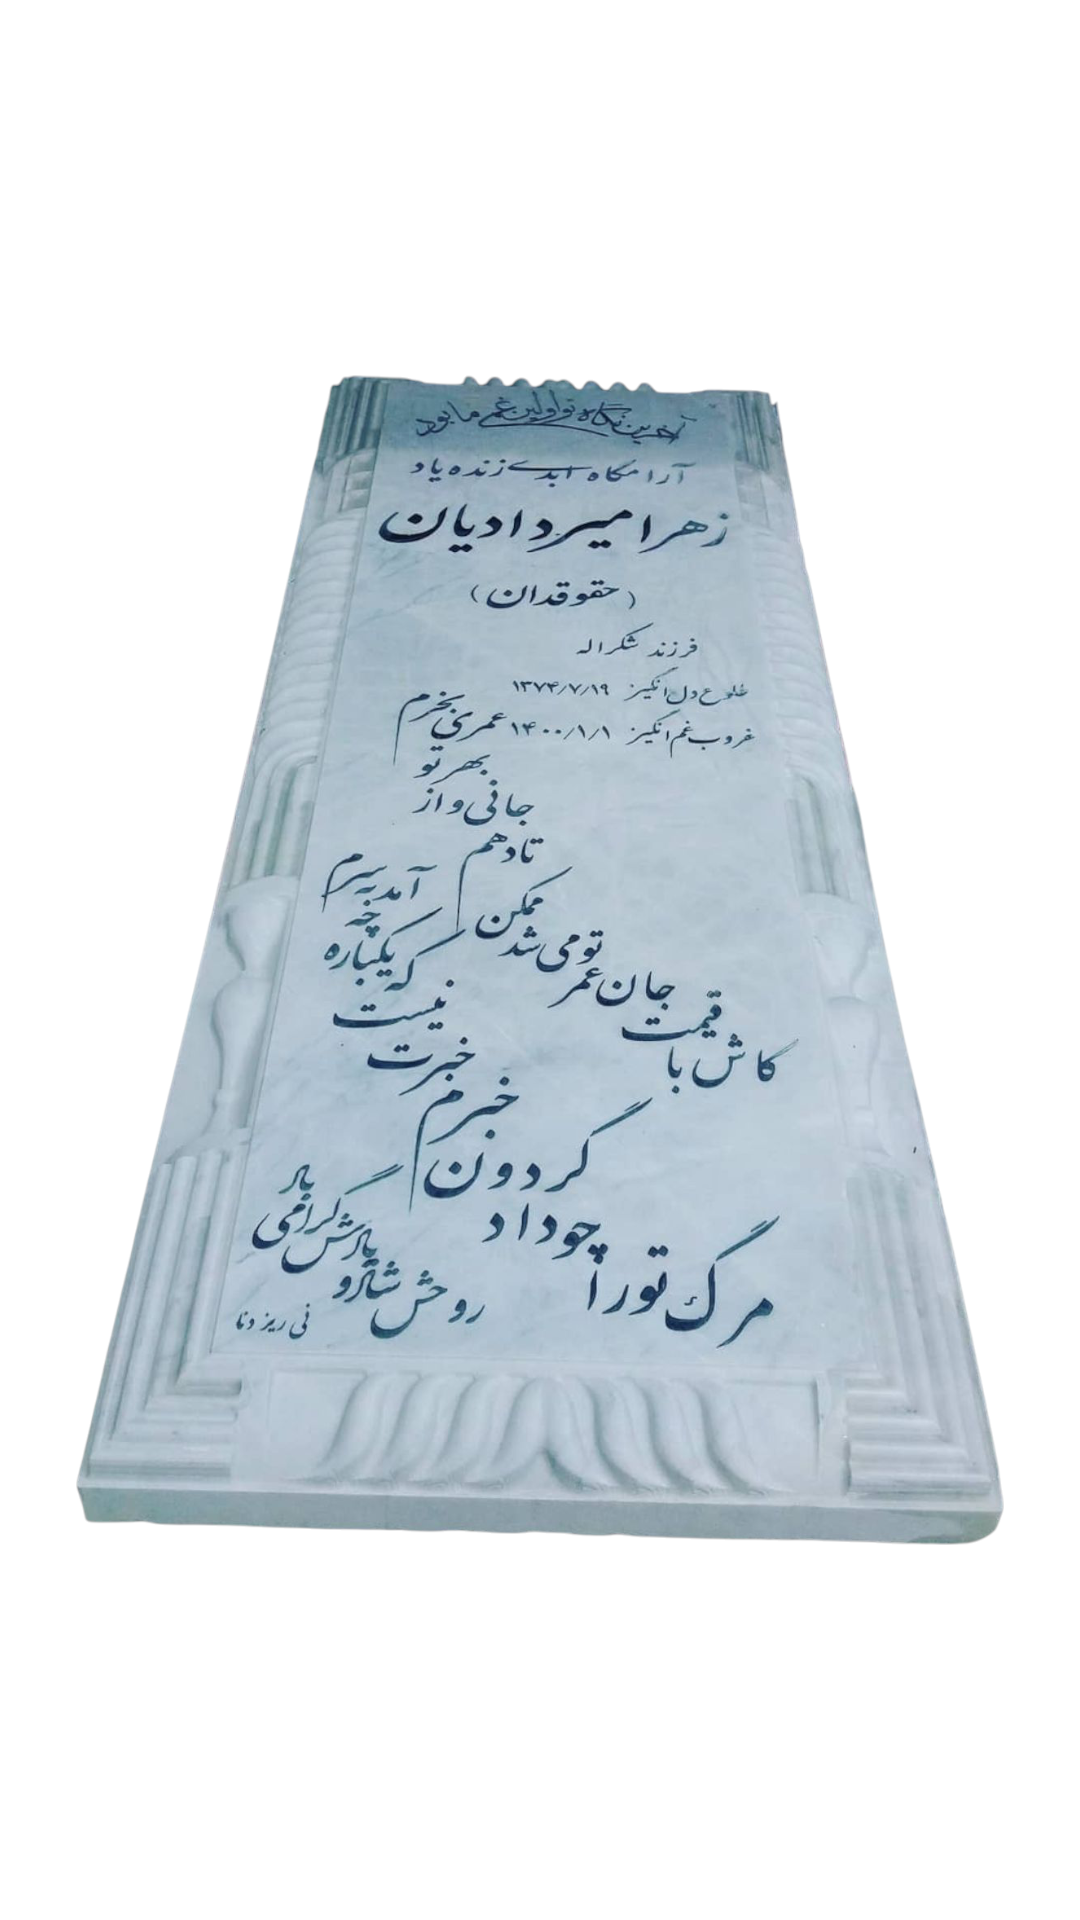 آخرین نگاه تو اولین غم ما بود
آرامگاه ابدی زنده یاد
زهرا میردادیان
(حقوقدان)
فرزند شکراله
طلوع دل انگیز ۱۳۷۴/۷/۱۹
غروب غم انگیز ۱۴۰۰/۱/۱
کاش با قیمت جان عمر تو می شد ممکن
تا دهم جانی و از بهر تو عمری بخرم
مرگ تو را چو داد گردون خبرم
خبرت نیست که یکباره چه آمد به سرم
روحش شاد و یادش گرامی باد
نی ریز دنا